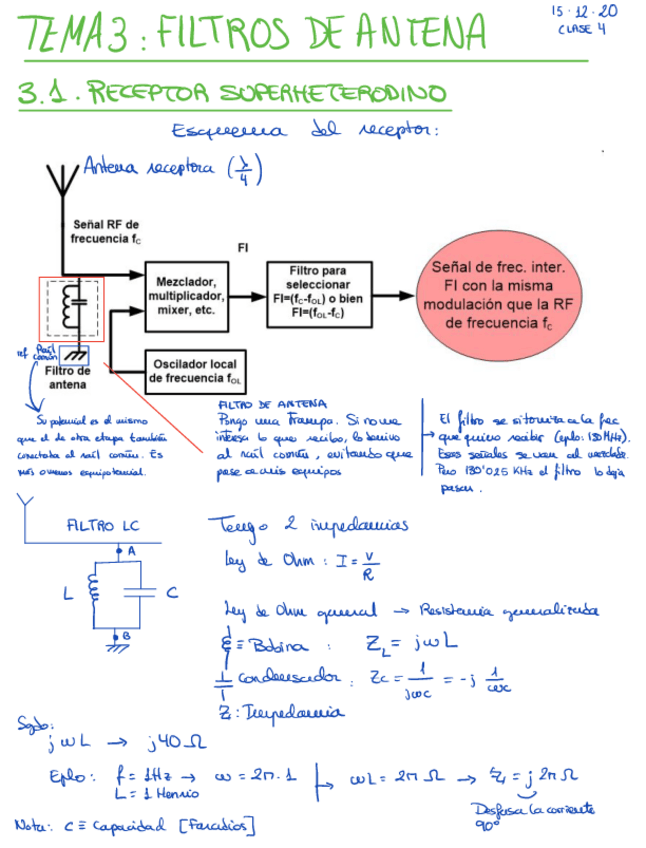 TEMA 3: FILTROS DE ANTENA
15.12.20
CLASE 4
3.1. RECEPTOR SUPERHETERODINO
Esquema del receptor:
Antena receptora (λ/4)
Señal RF de
frecuencia fC
FI
Mezclador,
multiplicador,
mixer, etc.
Filtro para
seleccionar
FI=(fC-fOL) o bien
FI=(fOL-fC)
Señal de frec. inter.
FI con la misma
modulación que la RF
de frecuencia fC
ref Raíl
común
Filtro de
antena
Oscilador local
de frecuencia fOL
Su potencial es el mismo
que el de otra etapa también
conectada al raíl común. Es
más o menos equipotencial.
FILTRO DE ANTENA
Pongo una trampa. Si no me
interesa lo que recibo, lo derivo
al raíl común, evitando que
pase a mis equipos
El filtro se sintoniza a la frec
→ que quiero recibir (eplo: 130MHz).
Esas señales se van al mezclador.
Pero 130'025 KHz el filtro lo deja
pasar.
FILTRO LC
A
L
C
B
Tengo 2 impedancias
Ley de Ohm: I = V/R
Ley de Ohm general → Resistencia generalizada
≡ Bobina: ZL = jωL
Condensador: ZC = 1/jωC = -j 1/ωC
Z: Impedancia
jωL → j40Ω
Eplo: f = 1Hz → ω = 2π·1
L = 1 Henrio
ωL = 2π Ω → ZL = j2πΩ
Desfasa la corriente
90°
Nota: C ≡ Capacidad [Faradios]